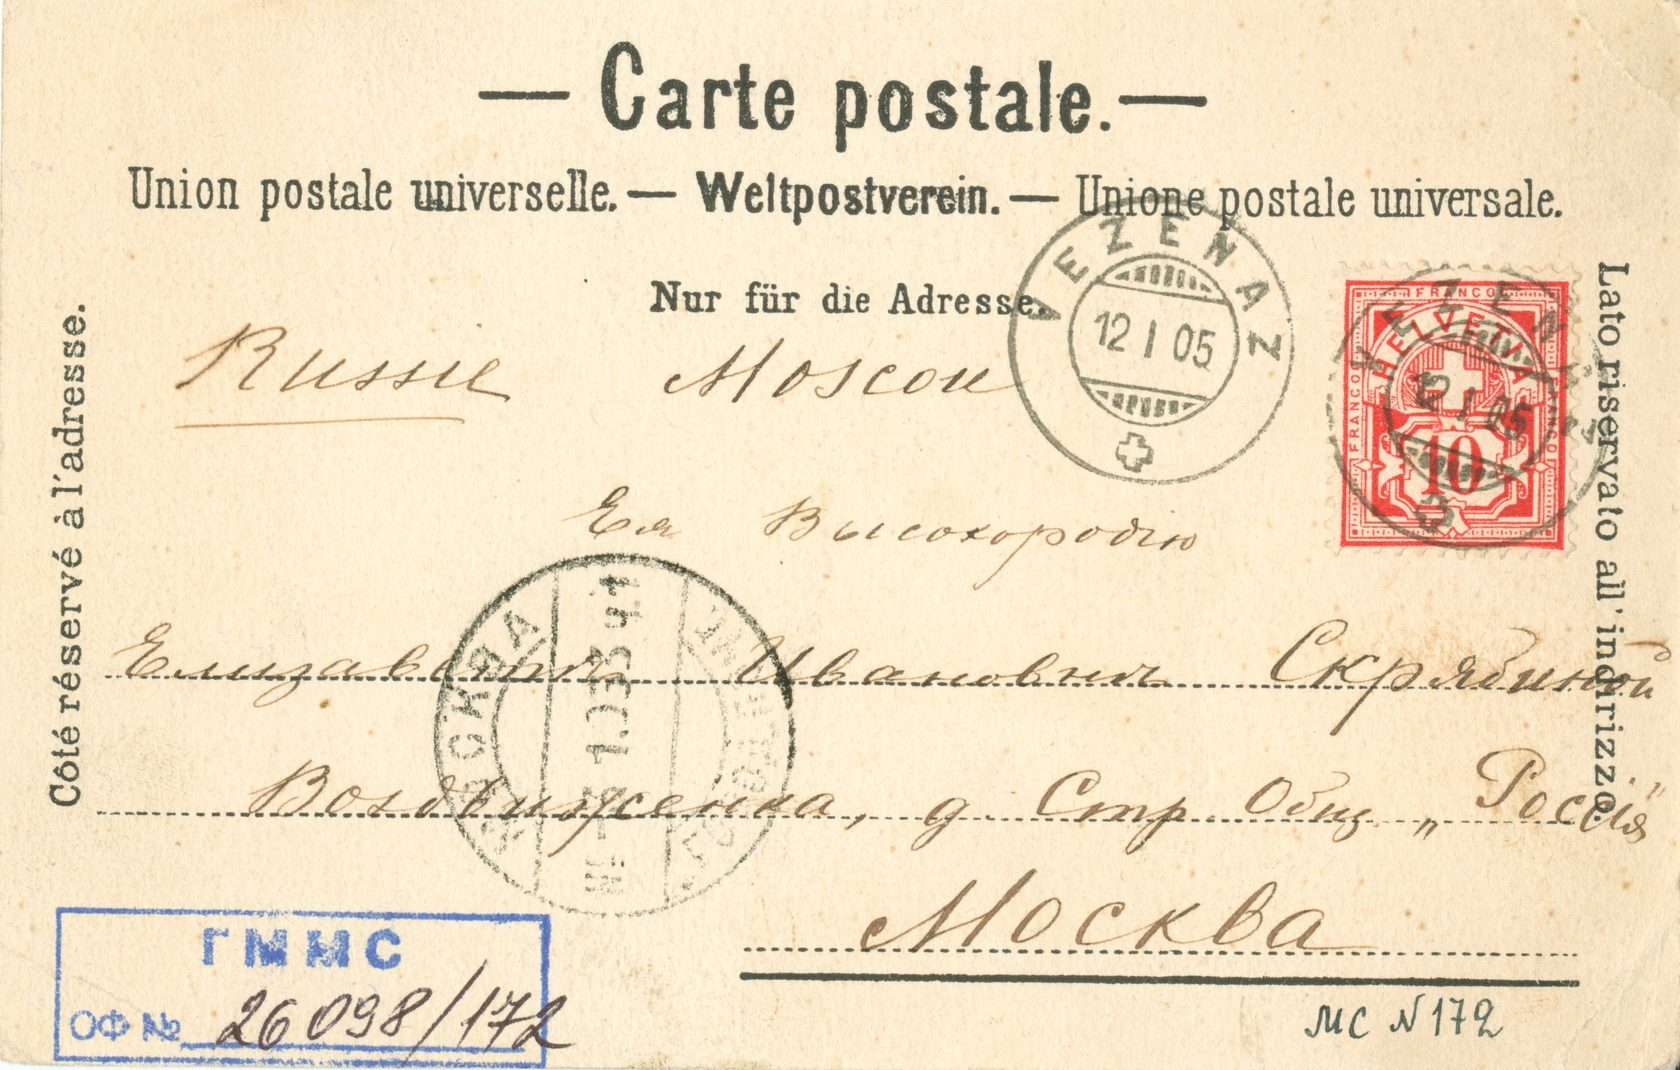 — Carte postale. —
Union postale universelle. — Weltpostverein. — Unione postale universale.
Nur für die Adresse.
Côté réservé à l'adresse.
Lato riservato all'indirizzo.
VEZENAZ
12 I 05
FRANCO
HELVETIA
FRANCO
10
VEZENAZ
12 I 05
Russie Moscou
Ея Высокородію
Елизаветѣ Ивановнѣ Скрябиной
Воздвиженка, д Стр. Общ „Россія"
Москва
МОСКВА
1.05
ГММС
ОФ № 26098/172
МС N 172